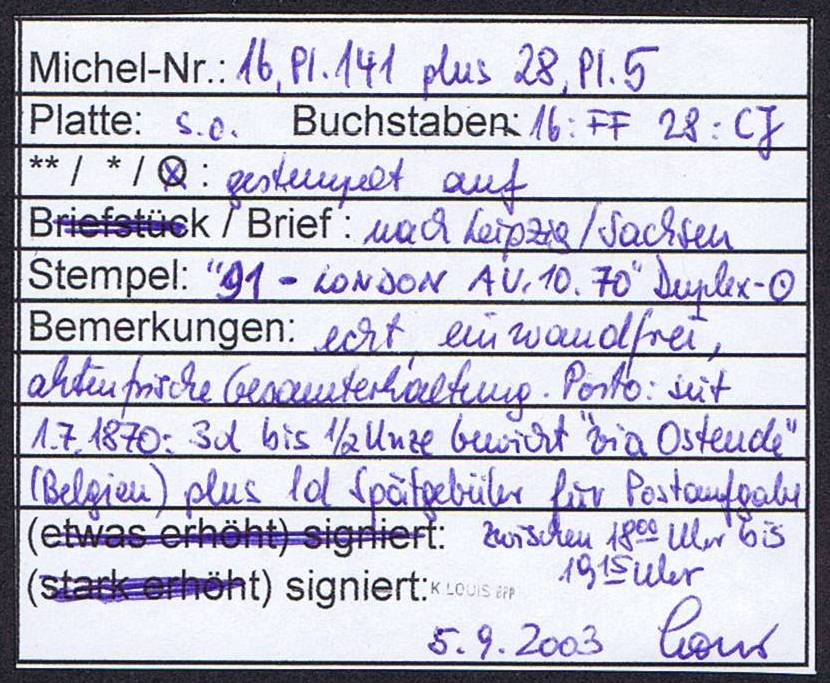 Michel-Nr.: 16, Pl. 141 plus 28, Pl. 5
Platte: s.o. Buchstaben: 16: FF 28: CJ
** / * / ⊙ : gestempelt auf
Briefstück / Brief : nach Leipzig/Sachsen
Stempel: "91 - LONDON AU. 10. 70" Duplex-⊙
Bemerkungen: echt, einwandfrei,
aktenfrische Gesamterhaltung. Porto: seit
1.7.1870: 3d bis 1/2 Unze bewirkt "via Ostende"
(Belgien) plus 1d Spätgebühr für Postaufgabe
(etwas erhöht) signiert: zwischen 18ºº Uhr bis
19¹⁵ Uhr
(stark erhöht) signiert: K. LOUIS BPP
5.9.2003 Louis